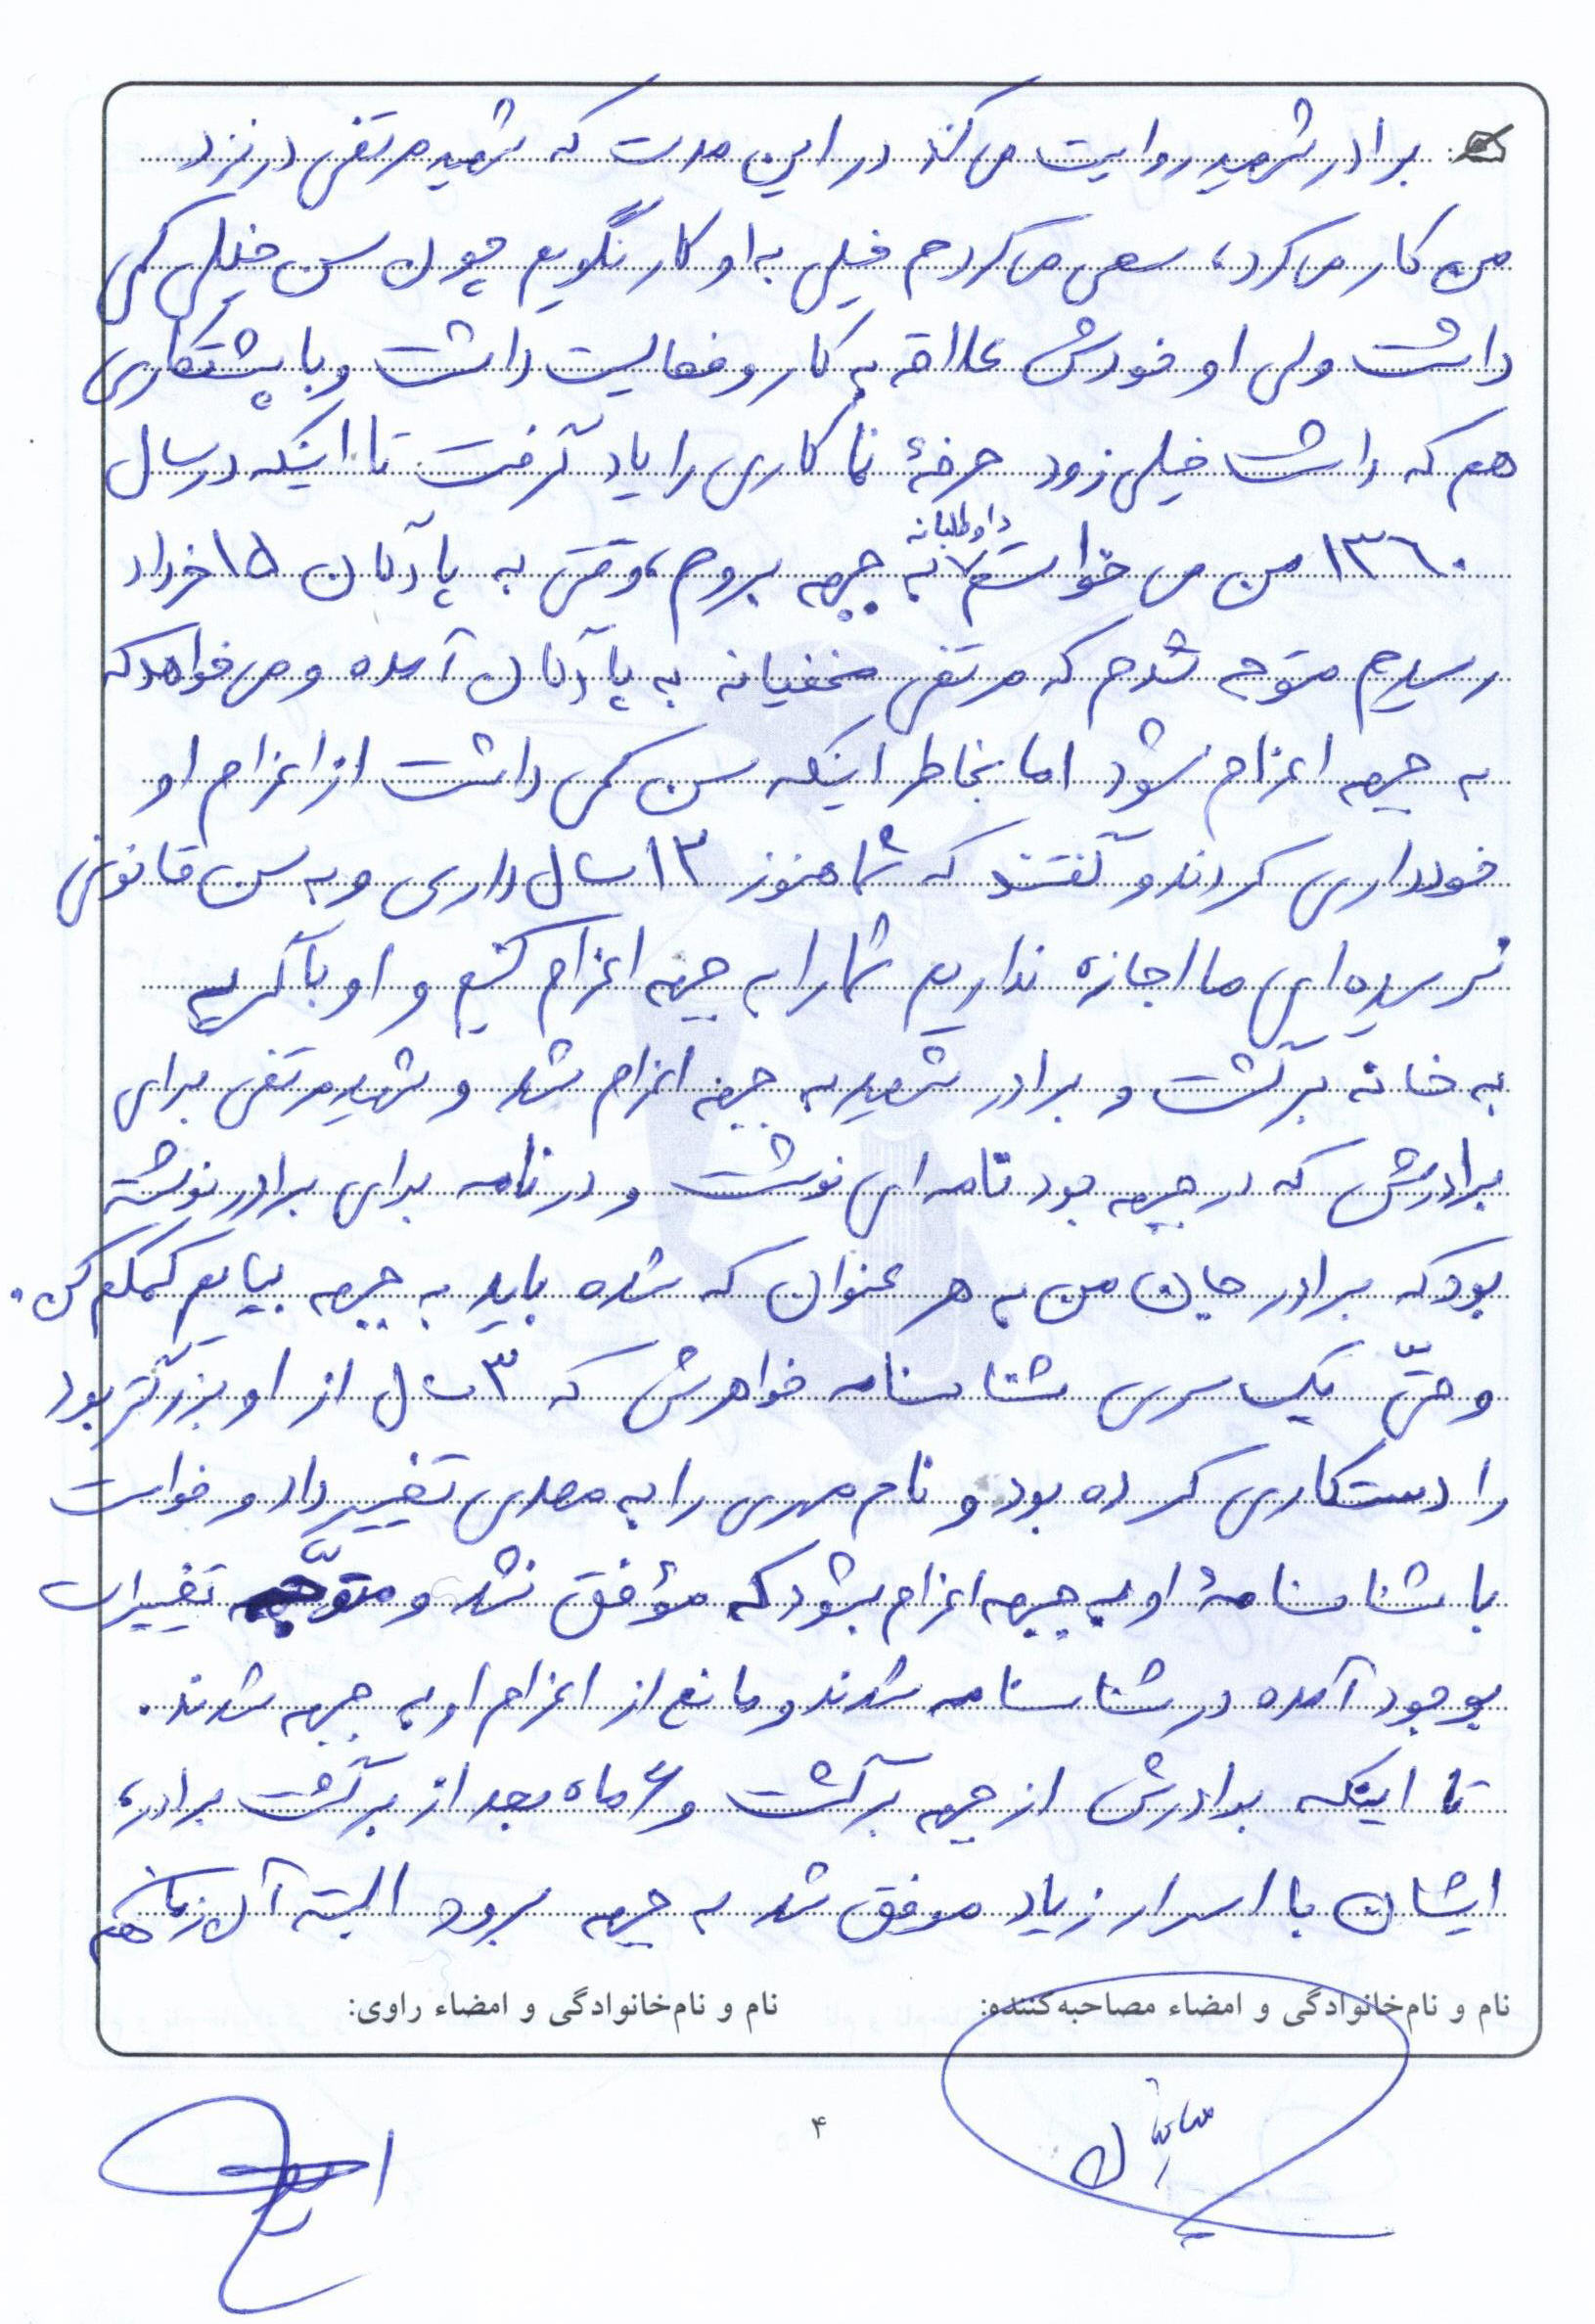 برادر شهید روایت می کند در این مدت که شهید مرتضی در نزد
من کار می کرد، سعی می کردم خیلی به او کار نگویم چون سن خیلی کمی
داشت ولی او خودش علاقه به کار و فعالیت داشت و با پشتکاری
هم که داشت خیلی زود حرفهٔ نما کاری را یاد گرفت تا اینکه در سال
۱۳۶۰ من می خواستم داوطلبانه به جبهه بروم، وقتی به پادگان ۱۵ خرداد
رسیدم متوجه شدم که مرتضی مخفیانه به پادگان آمده و می خواهد که
به جبهه اعزام شود اما بخاطر اینکه سن کمی داشت از اعزام او
خودداری کردند و گفتند که شما هنوز ۱۳ سال داری و به سن قانونی
نرسیده ای ما اجازه نداریم شما را به جبهه اعزام کنیم و او با گریه
به خانه برگشت و برادر شهید به جبهه اعزام شد و شهید مرتضی برای
برادرش که در جبهه بود نامه ای نوشت و در نامه برای برادر نوشته
بود که برادر جان من به هر عنوان که شده باید به جبهه بیایم کمکم کن.
و حتّی یک سری شناسنامه خواهرش که ۳ سال از او بزرگتر بود
را دستکاری کرده بود و نام مهری را به مهدی تغییر داد و خواست
با شناسنامهٔ او به جبهه اعزام بشود که مؤفق نشد و متوّجه تغییرات
بوجود آمده در شناسنامه شدند و مانع از اعزام او به جبهه شدند.
تا اینکه برادرش از جبهه برگشت و ۶ ماه بعد از برگشت برادر،
ایشان با اسرار زیاد موفق شد به جبهه برود البته آن زمان هم
نام و نام‌خانوادگی و امضاء مصاحبه‌کننده: نام و نام‌خانوادگی و امضاء راوی:
۴